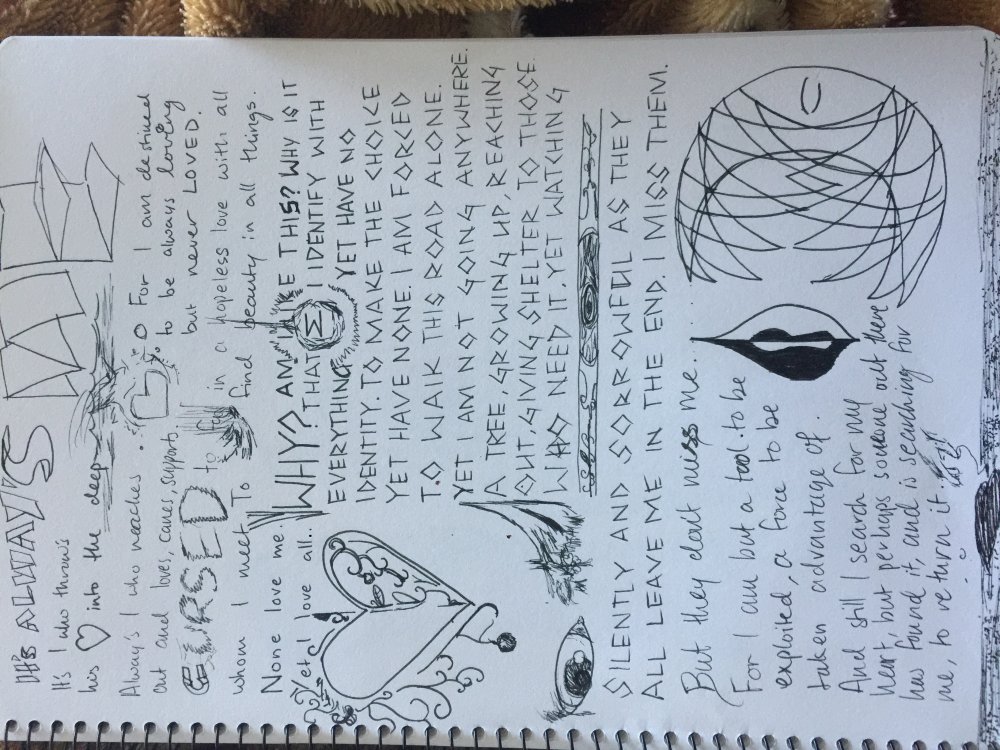 It's ALWAYS
It's I who throws
his ♡ into the deep
Always I who reaches... For I am destined
out and loves, cares, supports to be always loving
but never LOVED.
CURSED to in a hopeless love with all
whom I meet To find beauty in all things.
None love me.
Yet I love all..
WHY? AM I LIKE THIS? WHY IS IT
THAT I IDENTIFY WITH
EVERYTHING YET HAVE NO
IDENTITY. TO MAKE THE CHOICE
YET HAVE NONE. I AM FORCED
TO WALK THIS ROAD ALONE.
YET I AM NOT GOING ANYWHERE.
A TREE, GROWING UP, REACHING
OUT GIVING SHELTER TO THOSE
WHO NEED IT, YET WATCHING
SILENTLY AND SORROWFUL AS THEY
ALL LEAVE ME IN THE END. I MISS THEM.
But they don't miss me...
For I am but a tool to be
exploited, a force to be
taken advantage of
And still I search for my
heart, but perhaps someone out there
has found it, and is searching for
me, to return it